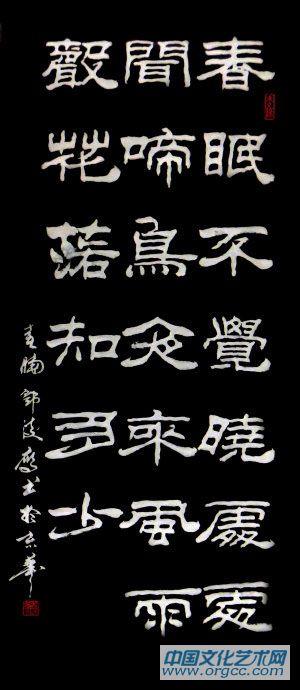 春眠不覺曉處處
聞啼鳥夜來風雨
聲花落知多少
春曉 郭 书於京華
中国文化艺术网
www.orgcc.com